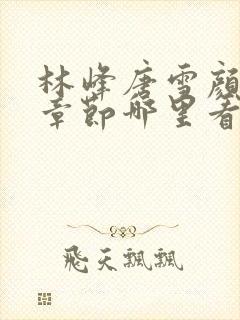 林峰唐雪颜
章节哪里看
飛天飄飄